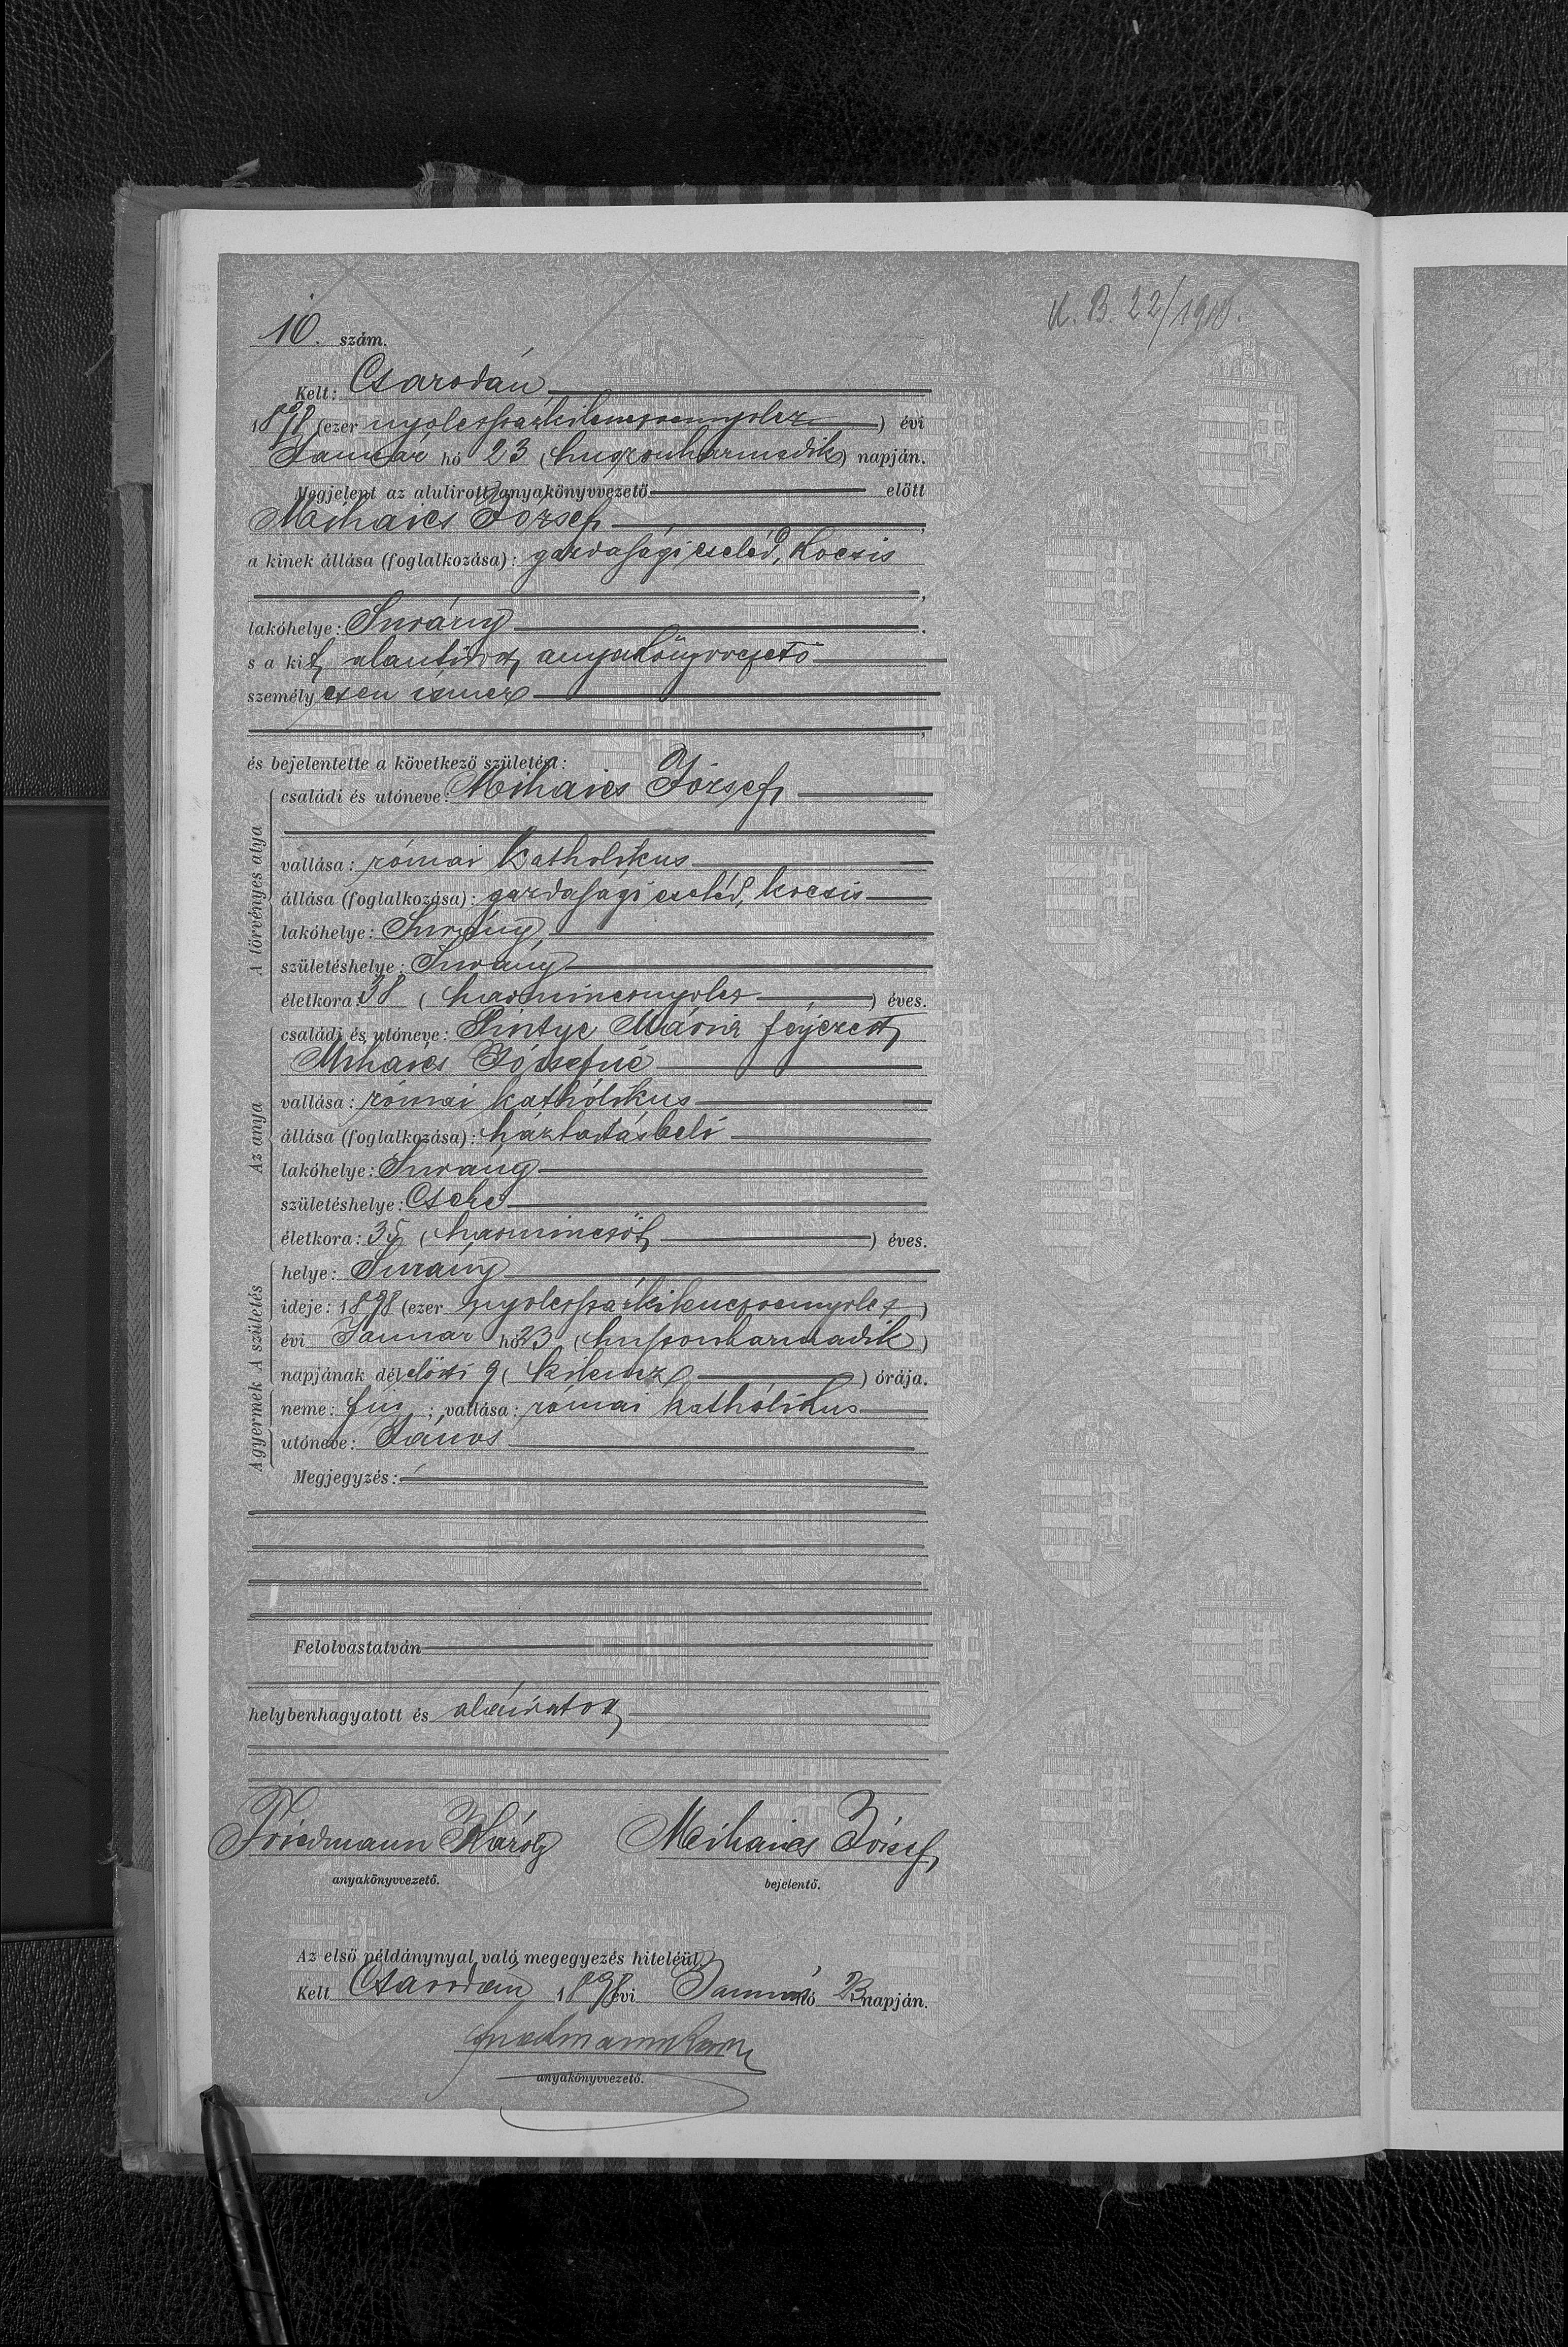 K. B. 22/1910.
10. szám.
Kelt: Csarodán,
1898 (ezer nyolcszázkilenczvennyolcz) évi
Januar hó 23 (huszonharmadik) napján.
Megjelent az alulirott anyakönyvvezető előtt
Mihaics József,
a kinek állása (foglalkozása): gazdasági cseléd, kocsis
lakóhelye: Surány
s a kit alantirott anyakönyvvezető
személyesen ismer
és bejelentette a következő születést:
A törvényes atya
családi és utóneve: Mihaics József,
vallása: római katholikus
állása (foglalkozása): gazdasági cseléd, kocsis
lakóhelye: Surány
születéshelye: Surány
életkora: 38 (harmincznyolcz) éves.
Az anya
családi és utóneve: Pintye Mária férjezett
Mihaics Józsefné
vallása: római kathólikus
állása (foglalkozása): háztartásbeli
lakóhelye: Surány
születéshelye:
életkora: 35 (harminczöt) éves.
A születés
helye: Surány
ideje: 1898 (ezer nyolcszázkilenczvennyolcz)
évi Januar hó 23 (huszonharmadik)
napjának délelőtti 9 (kilencz) órája.
A gyermek
neme: fiú; vallása: római kathólikus
utóneve: János
Megjegyzés:
Felolvastatván
helybenhagyatott és aláiratott
Friedmann Károly Mihaics József,
anyakönyvvezető. bejelentő.
Az első példánynyal való megegyezés hiteléül
Kelt Csarodán 1898 évi Januar hó 23 napján.
Friedmann Károly
anyakönyvvezető.